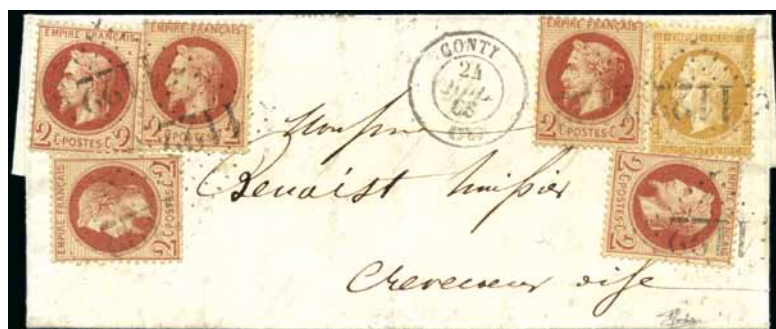 EMPIRE FRANÇAIS
2 C POSTES C 2
EMPIRE FRANÇAIS
2 C POSTES C 2
EMPIRE FRANÇAIS
2 C POSTES C 2
EMPIRE FRANC
CONTY
24
68
1122
1122
1122
1122
EMPIRE FRANÇAIS
2 C POSTES C 2
EMPIRE FRANÇAIS
2 C POSTES C 2
Monsieur
Benoist huissier
Crevecoeur oise